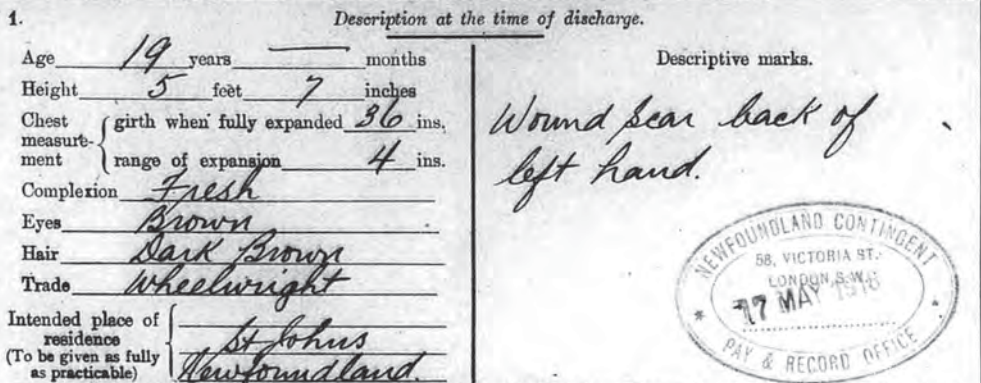 1. Description at the time of discharge.
Age 19 years — months
Height 5 feet 7 inches
Chest measure-ment girth when fully expanded 36 ins.
range of expansion 4 ins.
Complexion Fresh
Eyes Brown
Hair Dark Brown
Trade Wheelwright
Intended place of residence
(To be given as fully as practicable)
St Johns
Newfoundland.
Descriptive marks.
Wound scar back of
left hand.
NEWFOUNDLAND CONTINGENT
58, VICTORIA ST.
LONDON, S.W.
17 MAY
PAY & RECORD OFFICE